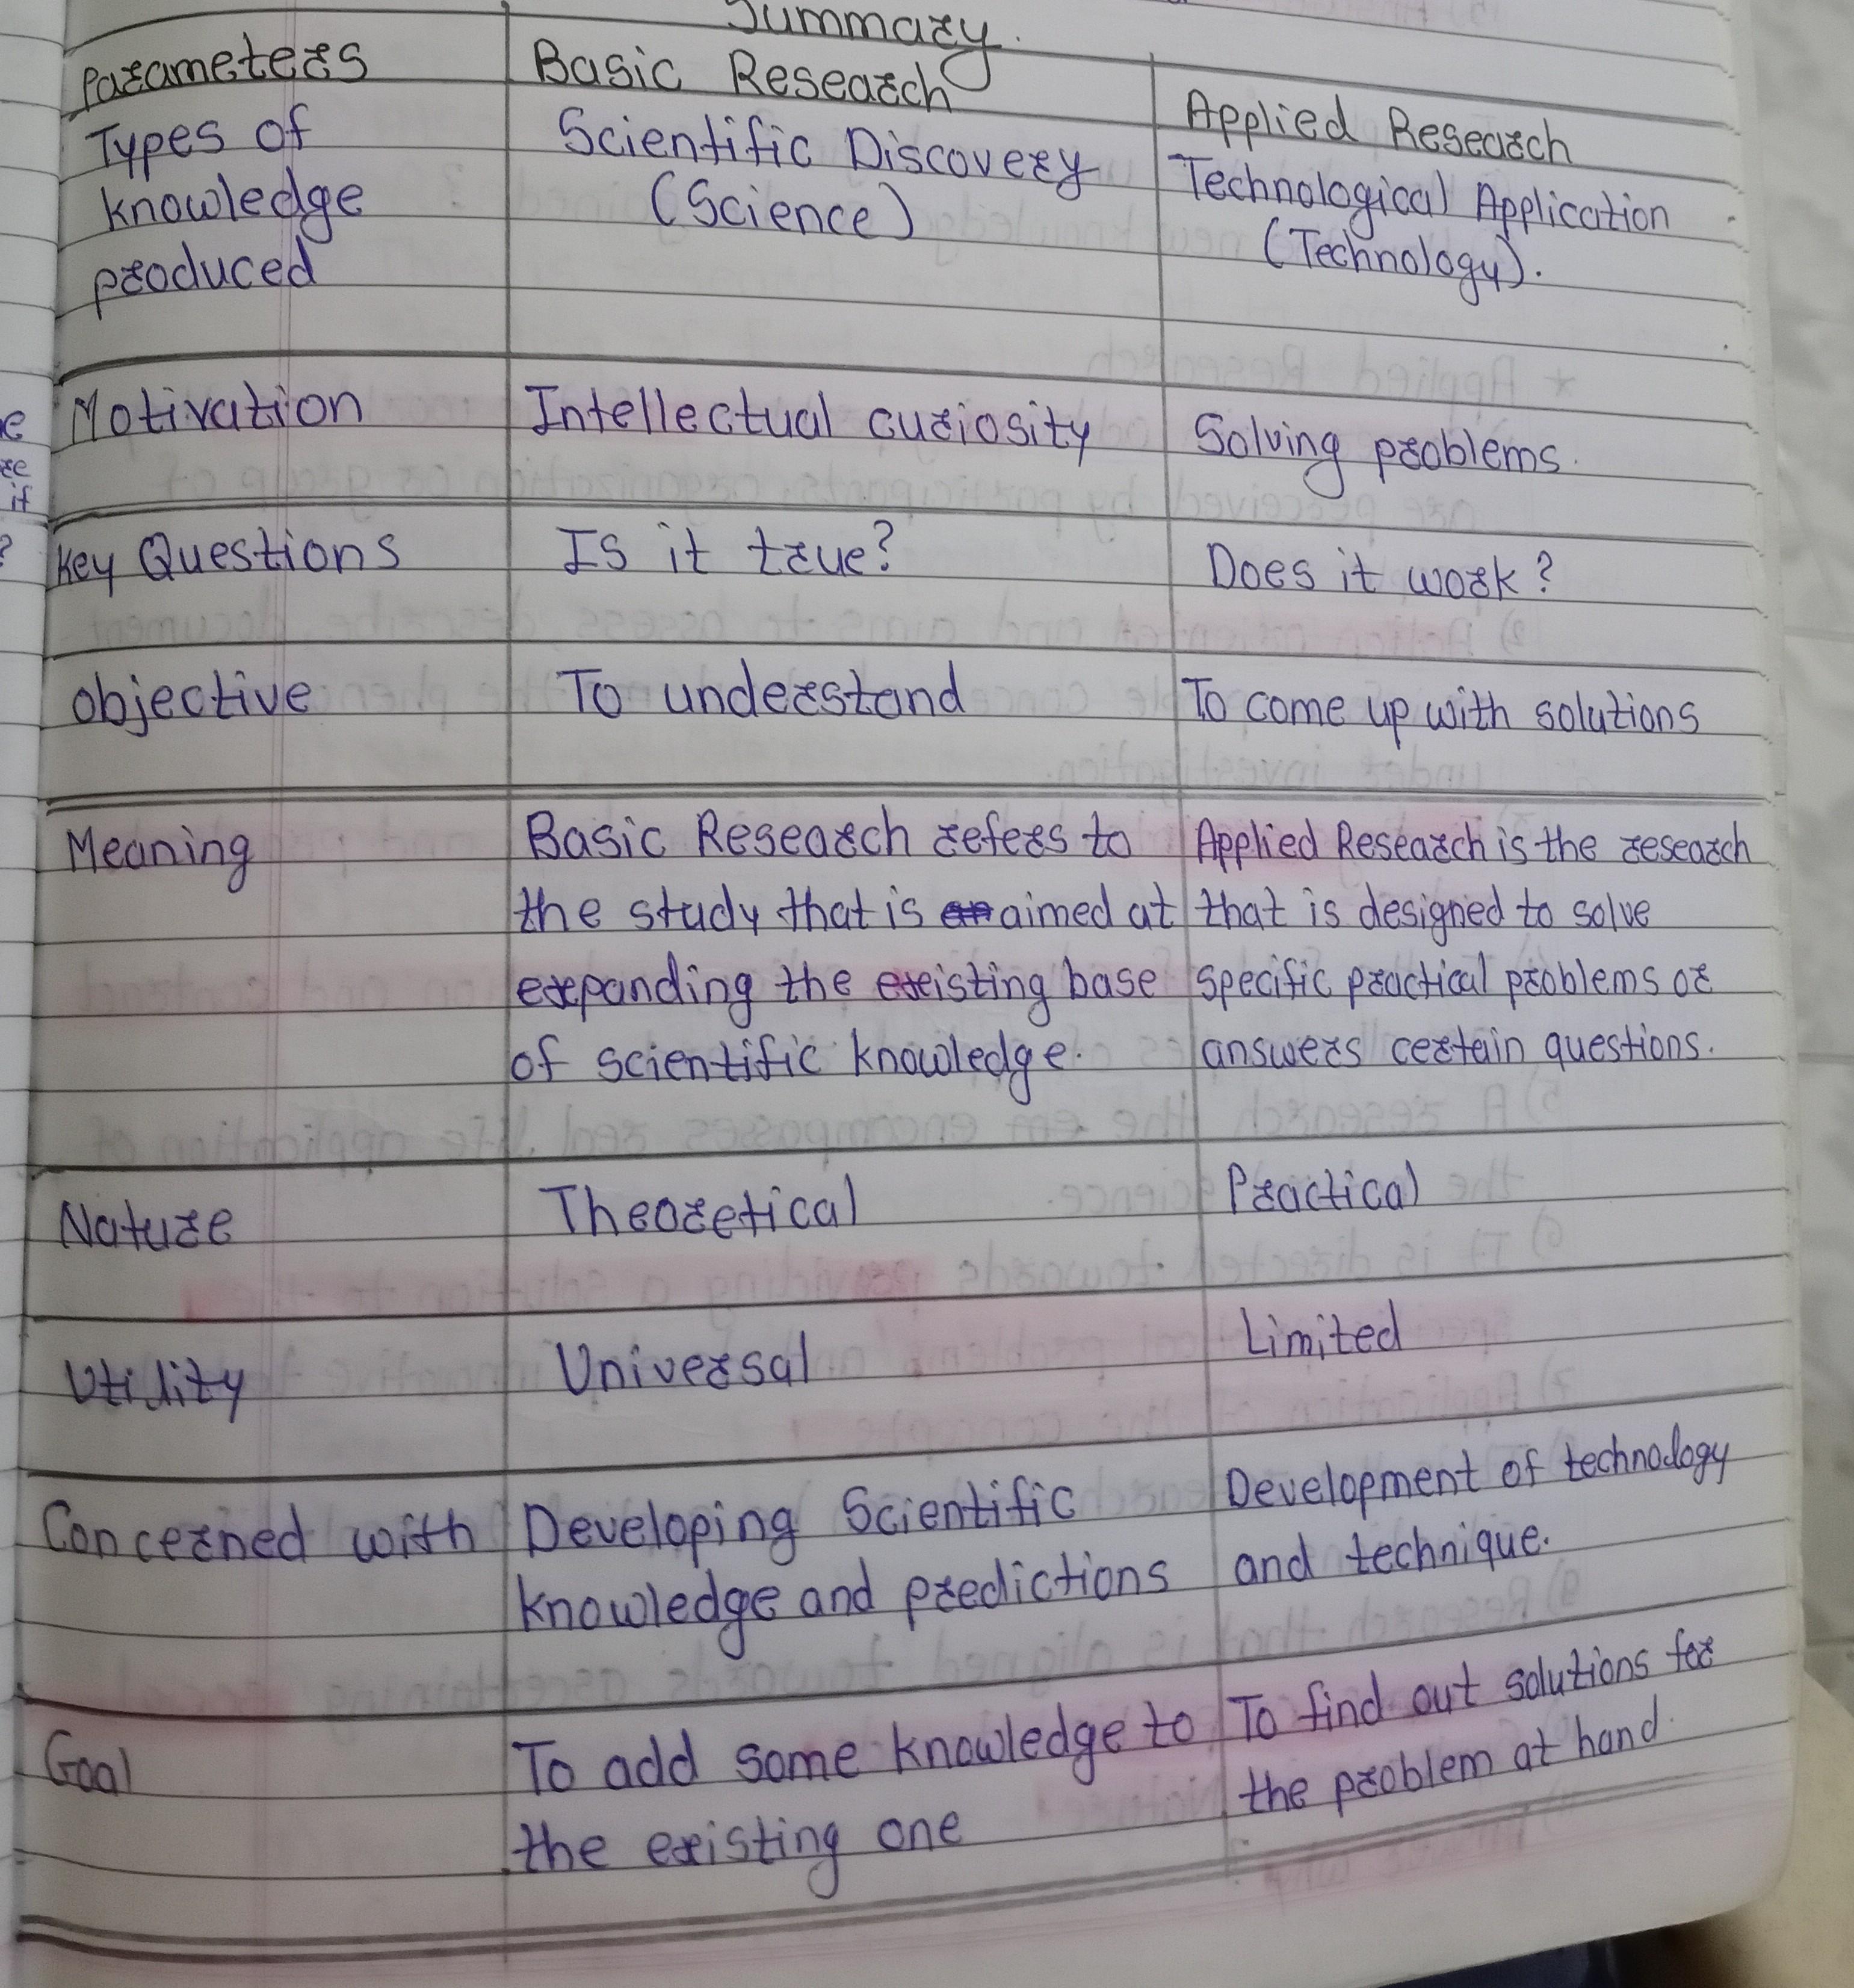 Summary.
Parameters Basic Research Applied Research
Types of Scientific Discovery Technological Application
knowledge (Science) (Technology).
produced
Motivation Intellectual curiosity Solving problems.
Key Questions Is it true? Does it work?
objective To understand To come up with solutions
Meaning Basic Research refers to Applied Research is the research
the study that is aimed at that is designed to solve
expanding the existing base specific practical problems or
of scientific knowledge. answers certain questions.
Nature Theoretical Practical
Utility Universal Limited
Concerned with Developing Scientific Development of technology
knowledge and predictions and technique.
Goal To add some knowledge to To find out solutions for
the existing one the problem at hand.